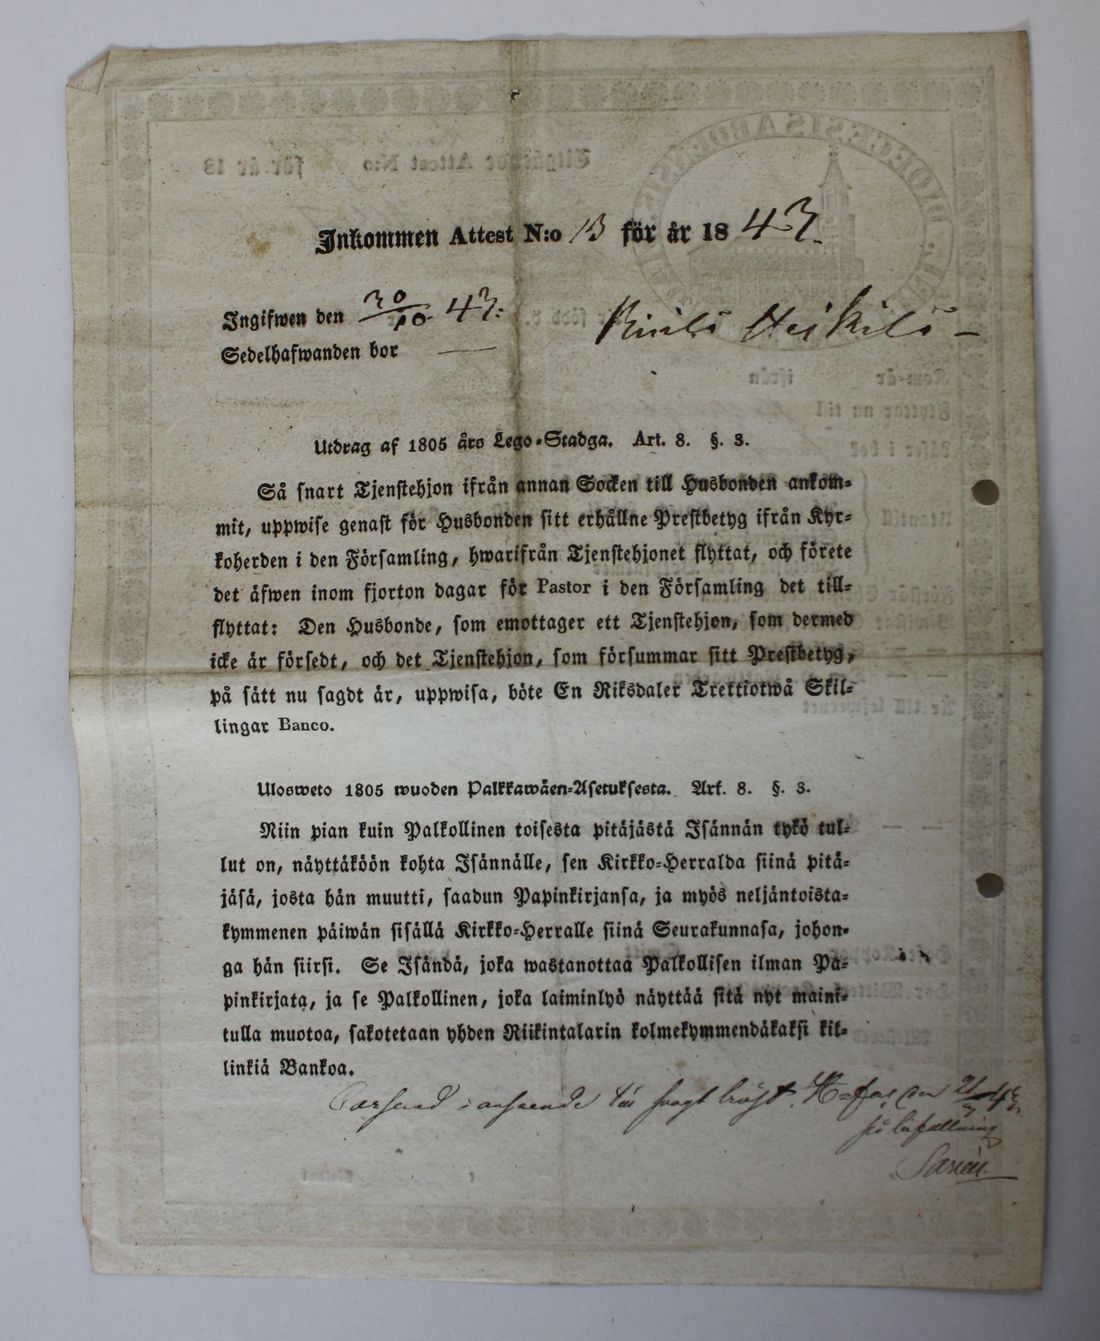 Inkommen Attest N:o 13 för år 1843.
Ingifwen den 30/10 43.
Heikilä
Sedelhafwanden bor —
Utdrag af 1805 års Lego-Stadga. Art. 8. §. 3.
Så snart Tjenstehjon ifrån annan Socken till Husbonden ankom-
mit, uppwise genast för Husbonden sitt erhållne Prestbetyg ifrån Kyr-
koherden i den Församling, hwarifrån Tjenstehjonet flyttat, och förete
det äfwen inom fjorton dagar för Pastor i den Församling det till-
flyttat: Den Husbonde, som emottager ett Tjenstehjon, som dermed
icke är försedt, och det Tjenstehjon, som försummar sitt Prestbetyg,
på sätt nu sagdt är, uppwisa, böte En Riksdaler Trettiotwå Skil-
lingar Banco.
Ulosweto 1805 wuoden Palkkawäen-Asetuksesta. Art. 8. §. 3.
Niin pian kuin Palkollinen toisesta pitäjästä Isännän tykö tul-
lut on, näyttäköön kohta Isännälle, sen Kirkko-Herralda siinä pitä-
jäsä, josta hän muutti, saadun Papinkirjansa, ja myös neljäntoista-
kymmenen päiwän sisällä Kirkko-Herralle siinä Seurakunnasa, johon-
ga hän siirsi. Se Isändä, joka wastanottaa Palkollisen ilman Pa-
pinkirjata, ja se Palkollinen, joka laiminlyö näyttää sitä nyt maini-
tulla muotoa, sakotetaan yhden Riikintalarin kolmekymmendäkaksi kil-
linkiä Bankoa.
i anseende till swagt bröst. H:fors den
på befallning